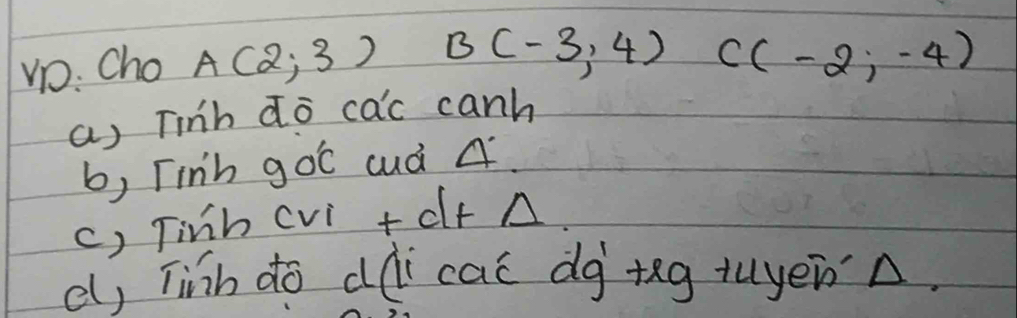 VD: Cho A(2;3) B(-3;4) C(-2;-4)
a) Tính độ các cạnh
b) Tính góc của Δ.
c) Tính cvi + dt Δ.
d) Tính độ dài các đg trg tuyến Δ.